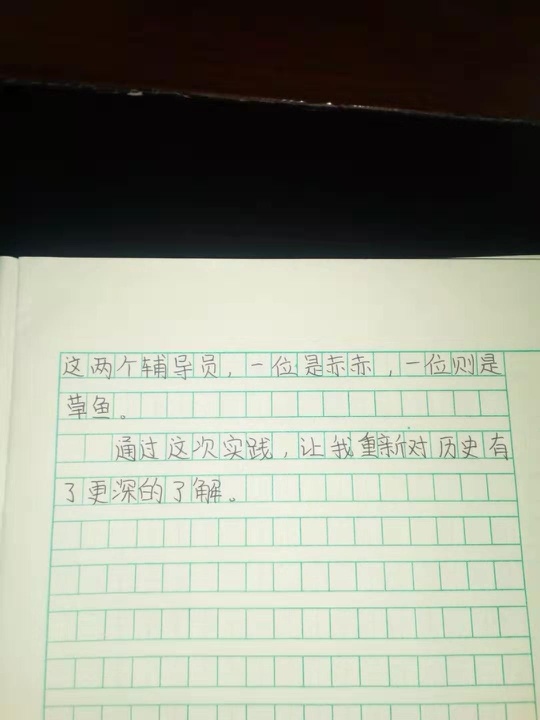 这两个辅导员，一位是赤赤，一位则是
草鱼。
通过这次实践，让我重新对历史有
了更深的了解。